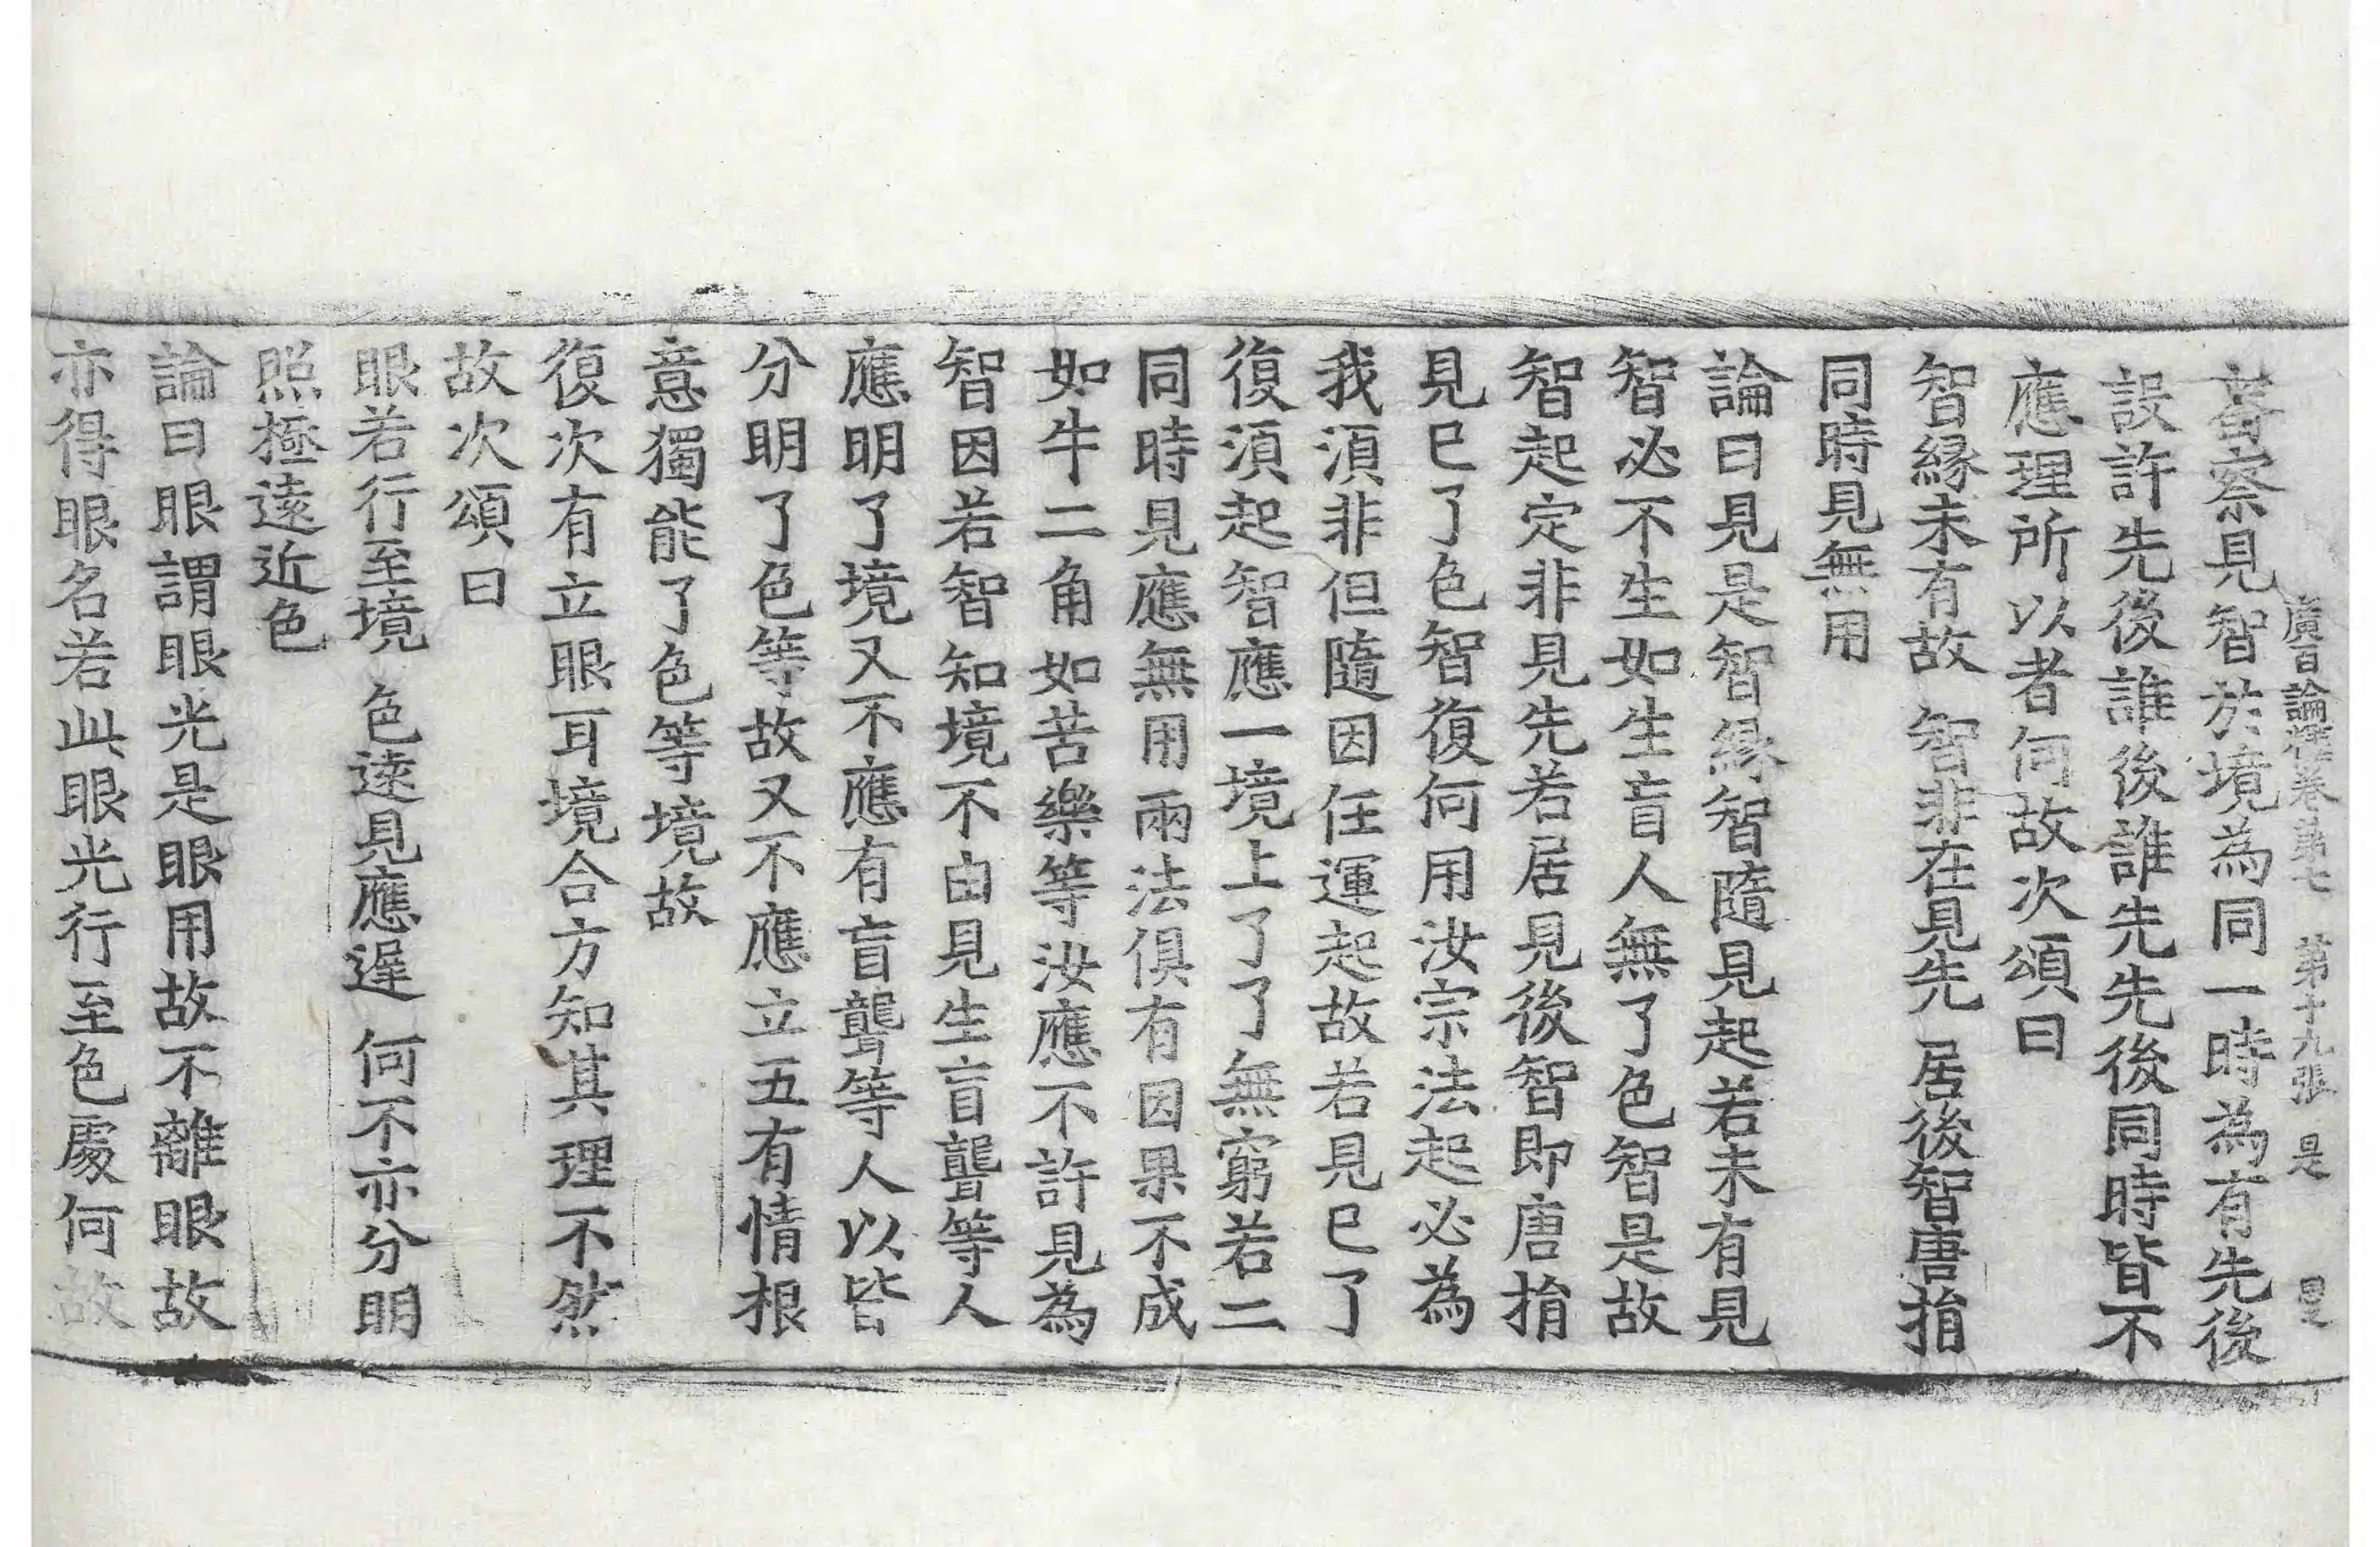 廣百論釋卷第七 第十九張 是
審察見智於境為同一時為有先後
設許先後誰後誰先先後同時皆不
應理所以者何故次頌曰
智緣未有故 智非在見先 居後智唐捐
同時見無用
論曰見是智緣智隨見起若未有見
智必不生如生盲人無了色智是故
智起定非見先若居見後智即唐捐
見已了色智復何用汝宗法起必為
我須非但隨因任運起故若見已了
復須起智應一境上了了無窮若二
同時見應無用兩法俱有因果不成
如牛二角如苦樂等汝應不許見為
智因若智知境不由見生盲聾等人
應明了境又不應有盲聾等人以皆
分明了色等故又不應立五有情根
意獨能了色等境故
復次有立眼耳境合方知其理不然
故次頌曰
眼若行至境 色遠見應遲 何不亦分明
照極遠近色
論曰眼謂眼光是眼用故不離眼故
亦得眼名若此眼光行至色處何故